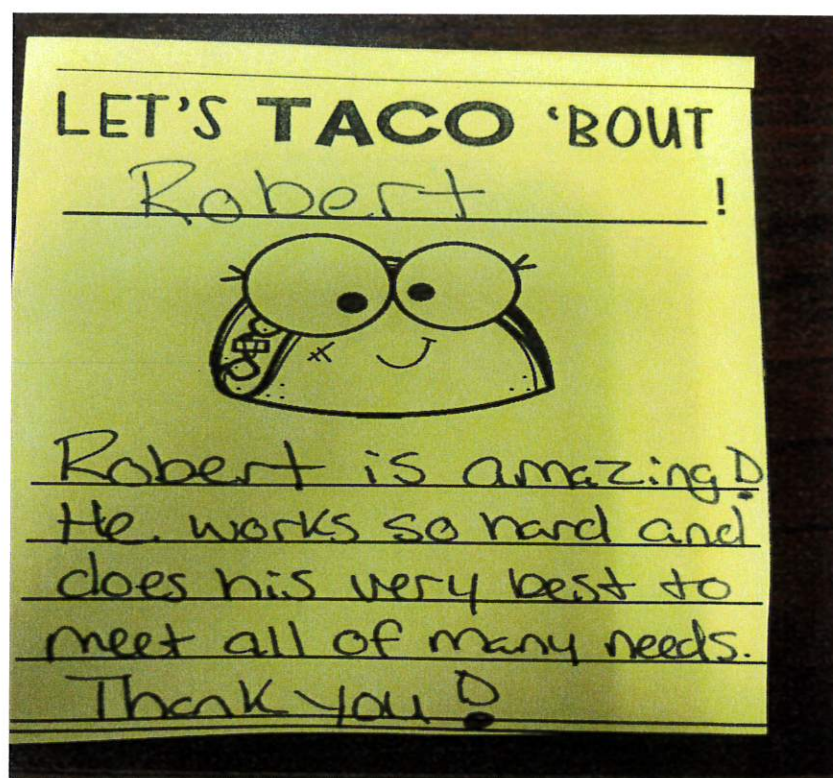 LET'S TACO 'BOUT
Robert!
Robert is amazing!
He works so hard and
does his very best to
meet all of many needs.
Thank you!